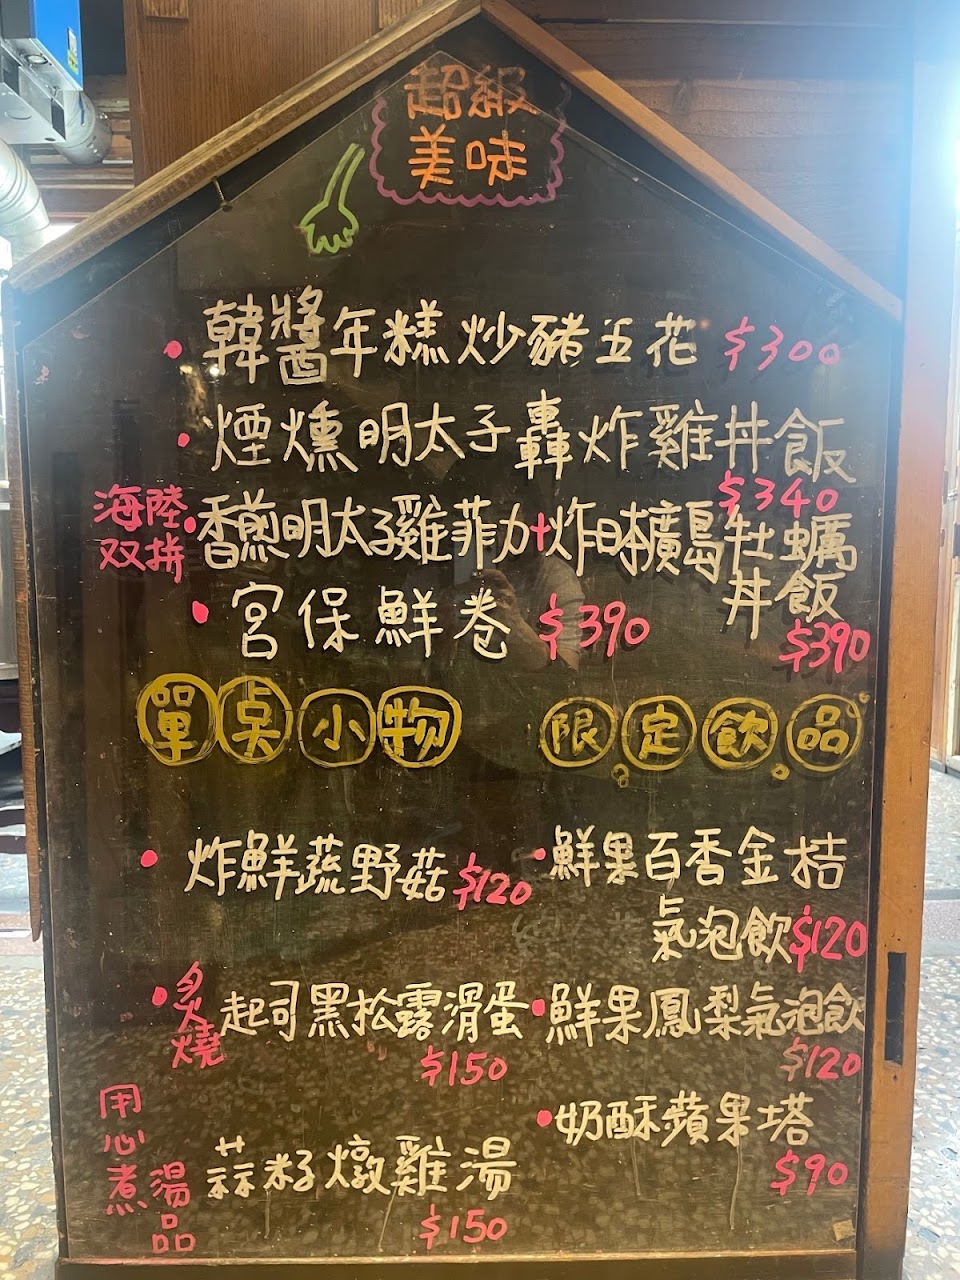 超級
美味
韓醬年糕炒豬五花 $300
煙燻明太子轟炸雞丼飯
$340
海陸
双拚
香煎明太子雞菲力+炸日本廣島牡蠣
丼飯
$390
宮保鮮卷 $390
單桌小物
限定飲品
炸鮮蔬野菇 $120
炙燒
起司黑松露滑蛋
$150
用心煮湯品
蒜籽燉雞湯
$150
鮮果百香金桔
氣泡飲 $120
鮮果鳳梨氣泡飲
$120
奶酥蘋果塔
$90